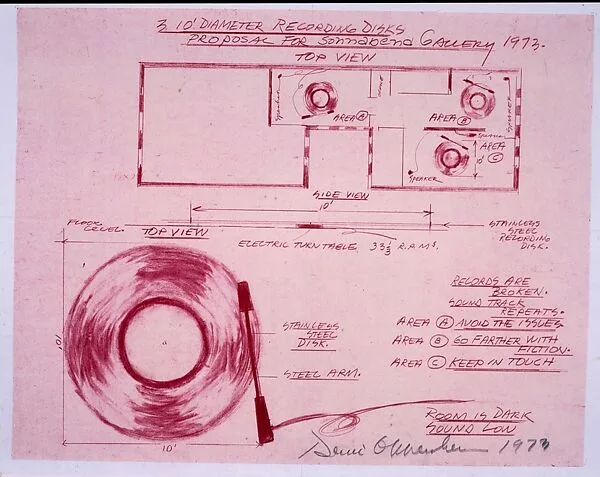 3 10' DIAMETER RECORDING DISKS
PROPOSAL FOR SONNABEND GALLERY 1973.
TOP VIEW
SPEAKER
AREA A
AREA B
SPEAKER
SPEAKER
AREA C
10'
SPEAKER
SIDE VIEW
10'
FLOOR LEVEL.
TOP VIEW
STAINLESS STEEL RECORDING DISK.
ELECTRIC TURNTABLE. 33 1/3 R.P.M.S.
10'
STAINLESS STEEL DISK.
STEEL ARM.
10'
RECORDS ARE BROKEN.
SOUND TRACK REPEATS.
AREA A AVOID THE ISSUES
AREA B GO FARTHER WITH FICTION.
AREA C KEEP IN TOUCH
ROOM IS DARK
SOUND LOW
1973